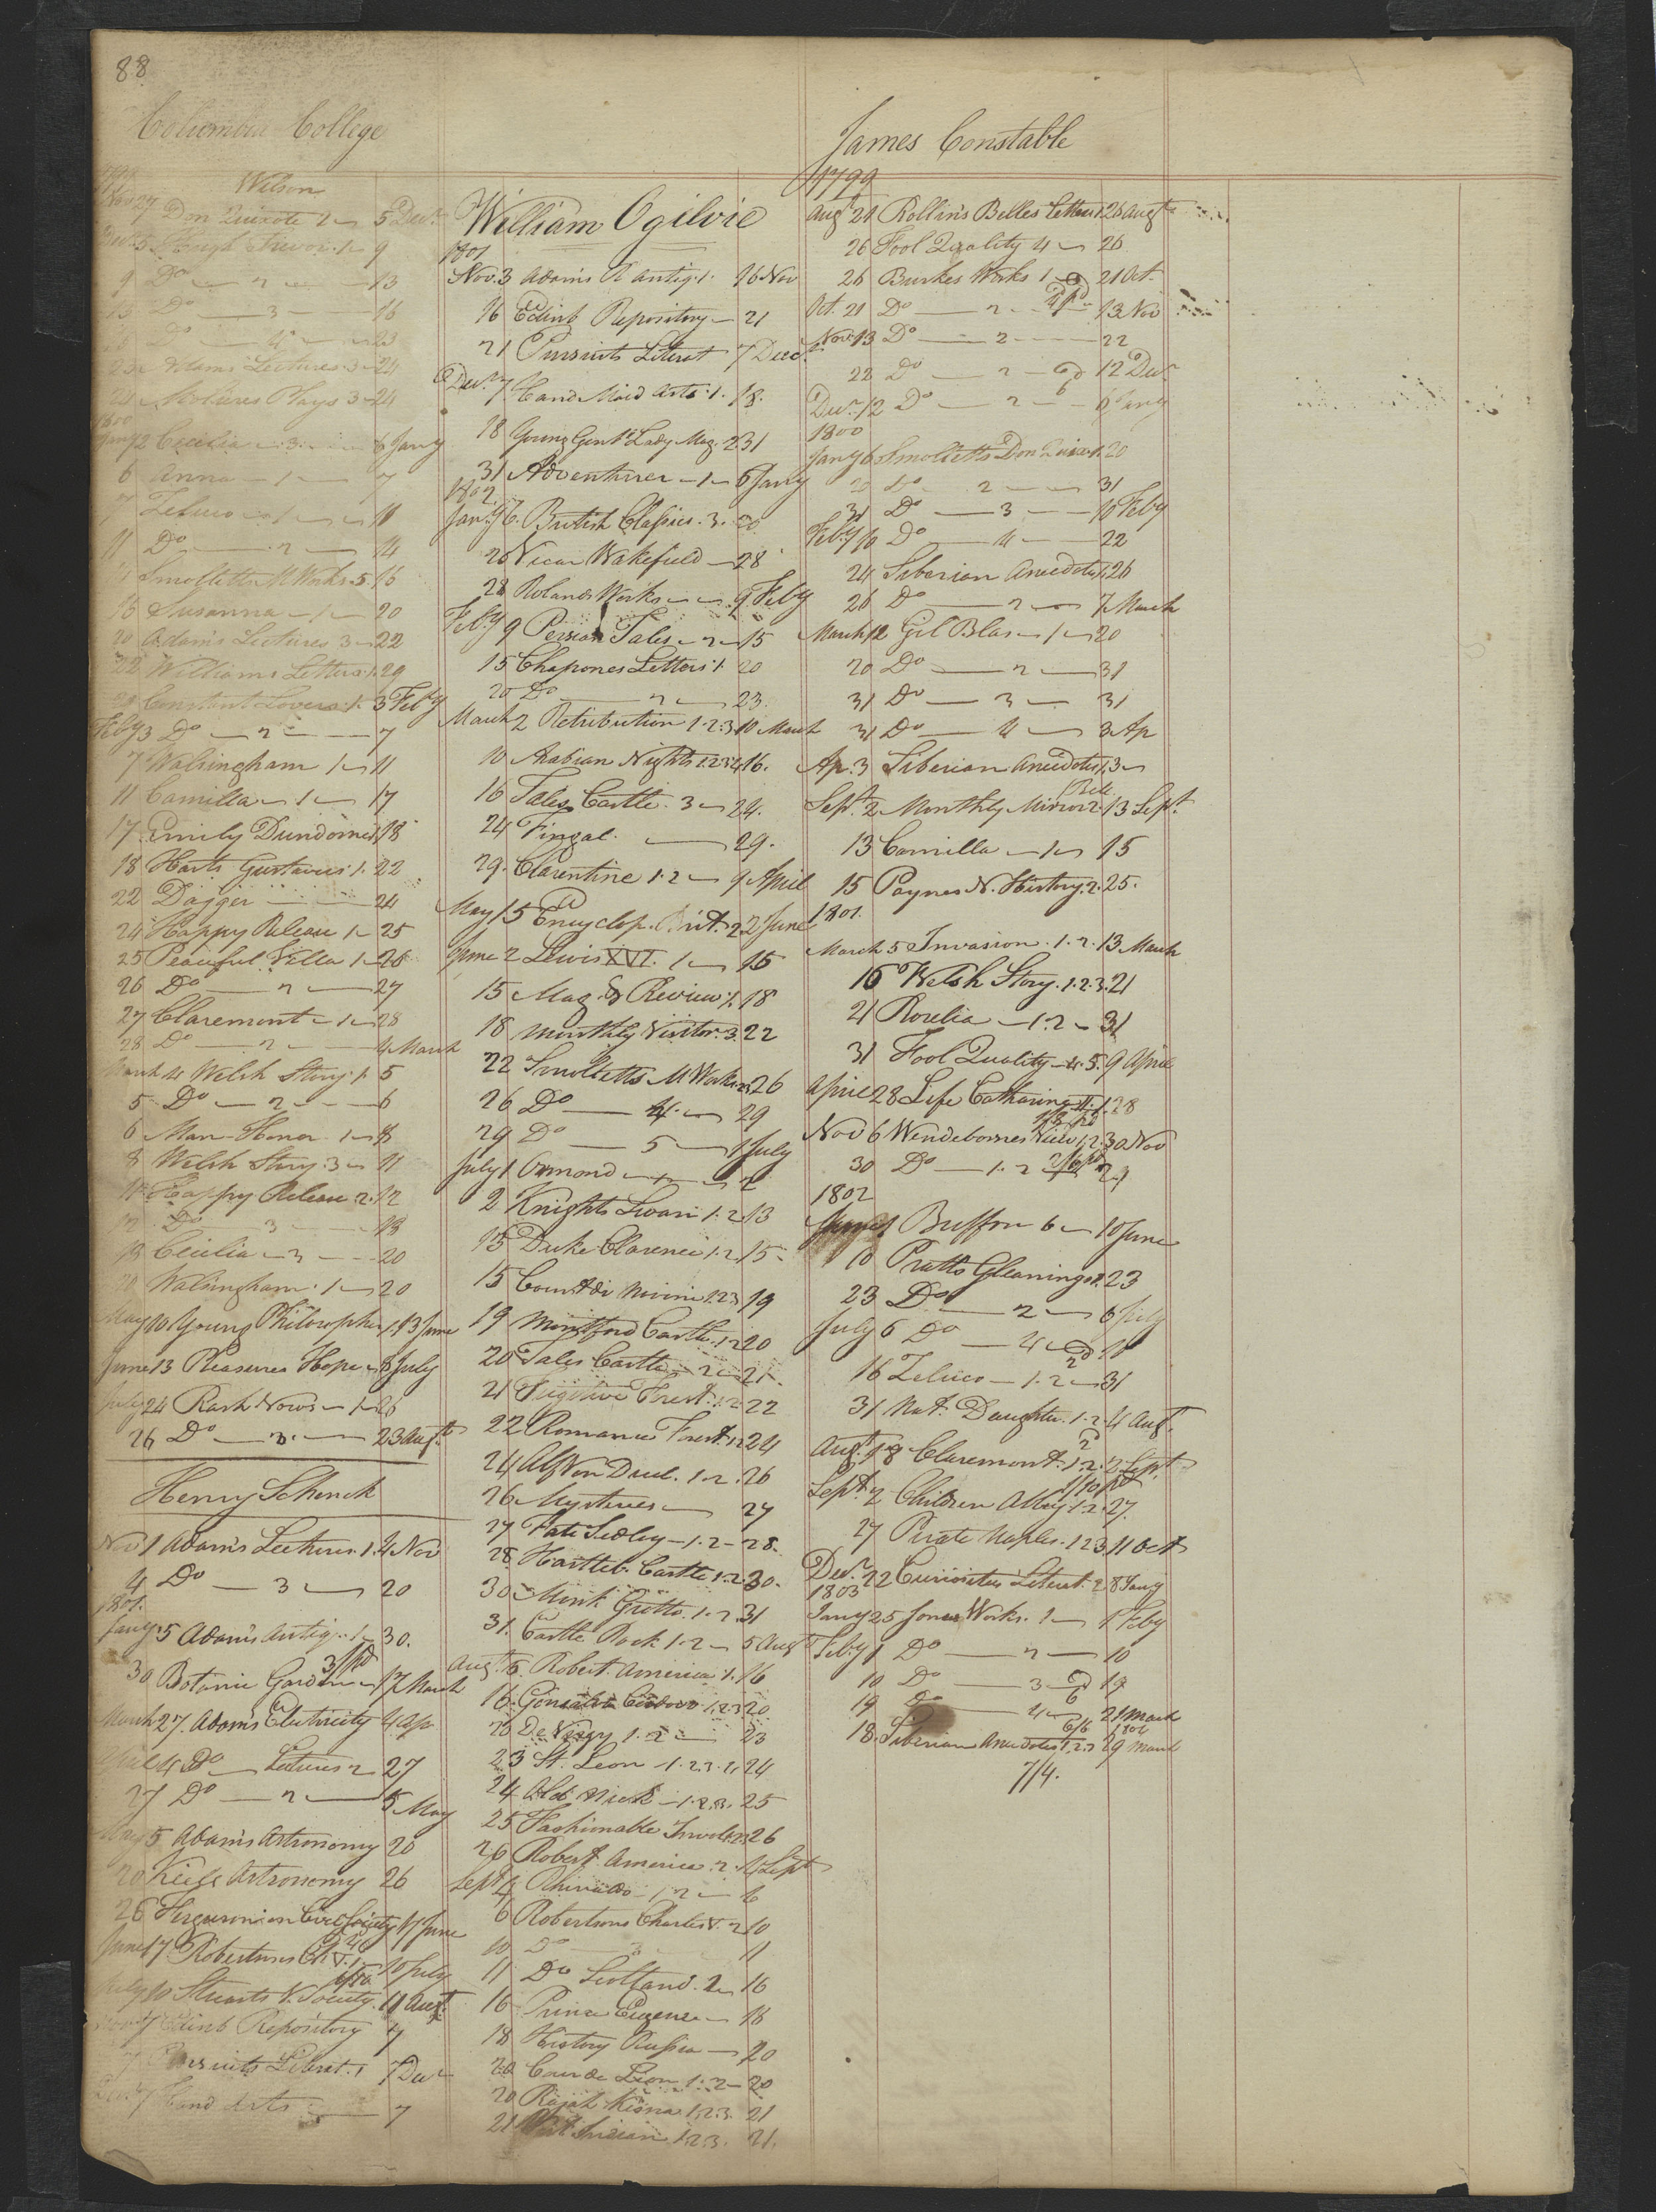 88
Columbia College
Wilson
Nov 27 Don Quixote 2 5 Decr
Decr 5 Hugh Trevor 1 9
9 Do 2 13
13 Do 3 16
Do 4 23
23 Adams Lectures 3 24
Molieres Plays 3 24
1800
Jany 2 Cecilia 3 6 Jany
6 Anna 1 7
7 Zeluco 1 11
11 Do 2 14
Smolletts M Works 5 16
16 Susanna 1 20
20 Adams Lectures 3 22
22 Williams Letters 1 29
29 Constant Lovers 1 3 Feby
Feby 3 Do 2 7
7 Walsingham 1 11
11 Camilla 1 17
17 Emily Dundorne 1 18
18 Harts Gustavus 1. 22
22 Dagger 24
24 Happy Release 1 25
25 Peaceful Villa 1 26
26 Do 2 27
27 Claremont 1 28
28 Do 2 4 March
March 4 Welsh Story 1 5
5 Do 2 6
6 Man Honor 1 8
8 Welsh Story 3 11
11 Happy Release 2. 12
12 Do 3 18
18 Cecilia 3 20
20 Walsingham 1 20
May 10 Young Philosopher 1 13 June
June 13 Pleasures Hope 8 July
July 24 Rash Vows 1 26
26 Do 2. 23 Augt
Henry Schenck
Nov 1 Adams Lectures. 1. 4 Nov
4 Do 3 20
1801.
Jany 5 Adams Antiq. 1 30.
30 Botanic Garden 3/pd 17 March
March 27. Adams Electricity 4 Ap
April 4 Do Lectures 2 27
27 Do 2 5 May
May 5 Adams Astronomy 20
20 Keils Astronomy 26
26 Ferguson on Civ Society 17 June
June 17 Robertsons Ch V. 1 10 July
July 10 Stuarts V. Society. 11 Augt
Nov 7 Edinb Repository 7
7 Pursuits Literat. 1 7 Decr
Decr 7 Hand Arts 7
William Ogilvie
1801
Nov. 3 Adams R Antiq. 1. 16 Nov
16 Edinb Repository 21
21 Pursuits Literat 7 Decr
Decr 7 Hand Maid Arts. 1. 18.
18 Young Gent & Lady Mag. 2 31
31 Adventurer 1 6 Jany
1802.
Jany 6. British Classics. 3. 20
20 Vicar Wakefield 28
28 Rolands Works 9 Feby
Feby 9 Persian Tales 2 15
15 Chapones Letters 1 20
20 Do 2 23.
March 2 Retribution 1.2.3 10 March
10 Arabian Nights 1.2.3.4 16.
16 Tales Castle. 3 24.
24 Fingal. 29.
29. Clarentine 1.2 9 April
May 15 Encyclop. Brit. 2 2 June
June 2 Lewis XVI. 1 15
15 Mag. & Review 1. 18
18 Monthly Visitor. 3. 22
22 Smolletts M Works 26
26 Do 4. 29
29 Do 5 1 July
July 1 Ormond 1 2
2 Knights Swan 1.2. 13
13 Duke Clarence 1.2. 15
15 Count di Novini 1.2.3 19
19 Montford Castle. 1.2 20
20 Tales Castle 2 21.
21 Fugitive Forest. 1.2 22
22 Romance Forest. 1.2 24
24 Alf Von Duel. 1.2. 26
26 Mysteries 27
27 Fate Sedley 1.2 28.
28. Hartleb. Castle 1.2. 30.
30 Monk Grotto. 1.2. 31
31. Castle Rock 1.2 5 Augt
Augt 5. Robert. America. 1. 16
16. Gonsalvo Cordova 1.2.3 20
20 De Valcy 1.2 23
23 St. Leon 1.2.3. 24
24 Old Nick 1.2.3. 25
25 Fashionable Involv. 1.2.3 26
26 Robert America. 2. 4 Sept
Sept 4 Rhinaldo 1.2 6
6 Robertsons Charles V. 2 10
10 Do 11
11 Do Scotland. 2 16
16 Prince Eugene 18
18 History Russia 20
20 Cour de Lion 1.2 20
20 Rajah Kisna 1.2.3. 21
21 West Indian 1.2.3. 21.
James Constable
1799
Augt 21 Rollins Belles Letters 1. 26 Augt
26 Fool Quality 4 26
26 Burkes Works 1 21 Oct.
Oct. 21 Do 2 13 Nov
Novr 13 Do 2 22
22 Do 2 12 Decr
Decr 12 Do 2 6 Jany
1800
Jany 6 Smolletts Don Quixot 1. 20
20 Do 2 31
31 Do 3 10 Feby
Feby 10 Do 4 22
24 Siberian Anecdotes 1. 26
26 Do 2 7 March
March 12 Gil Blas 1 20
20 Do 2 31
31 Do 3 31
31 Do 4 3 Ap
Ap. 3 Siberian Anecdotes 1. 3
Sept. 2 Monthly Mirror 2. 13 Sept.
13 Camilla 1 15
15 Paynes N. History. 2. 25.
1801.
March 5 Invasion. 1.2. 13 March
16 Welsh Story. 1.2.3. 21
21 Roselia 1.2 31
31 Fool Quality 4.5. 9 April
April 28 Life Catharine II. 1. 28
Nov 6 Wendebornes View 1.2. 30 Nov
30 Do 1.2 2/6 pd
1802
June 1 Buffon 6 10 June
10 Pratts Gleanings 1. 23
23 Do 2 6 July
July 6 Do 4 16
16 Zeluco 1.2 31
31 Nat. Daughter. 1.2. 4 Augt.
Augt 18 Claremont. 1.2. 2 Sept
Sept 2 Children Abbey 1.2. 27.
27 Pirate Naples. 1.2.3. 11 Oct
Decr. 22 Curiosities Literat. 2. 8 Jany
1803
Jany 25 Jones Works. 1 1 Feby
Feby 1 Do 2 10
10 Do 3 19
19 Do 4 21 March
1804
18. Siberian Anecdotes 1.2.3 6/6 29 March
7/4.